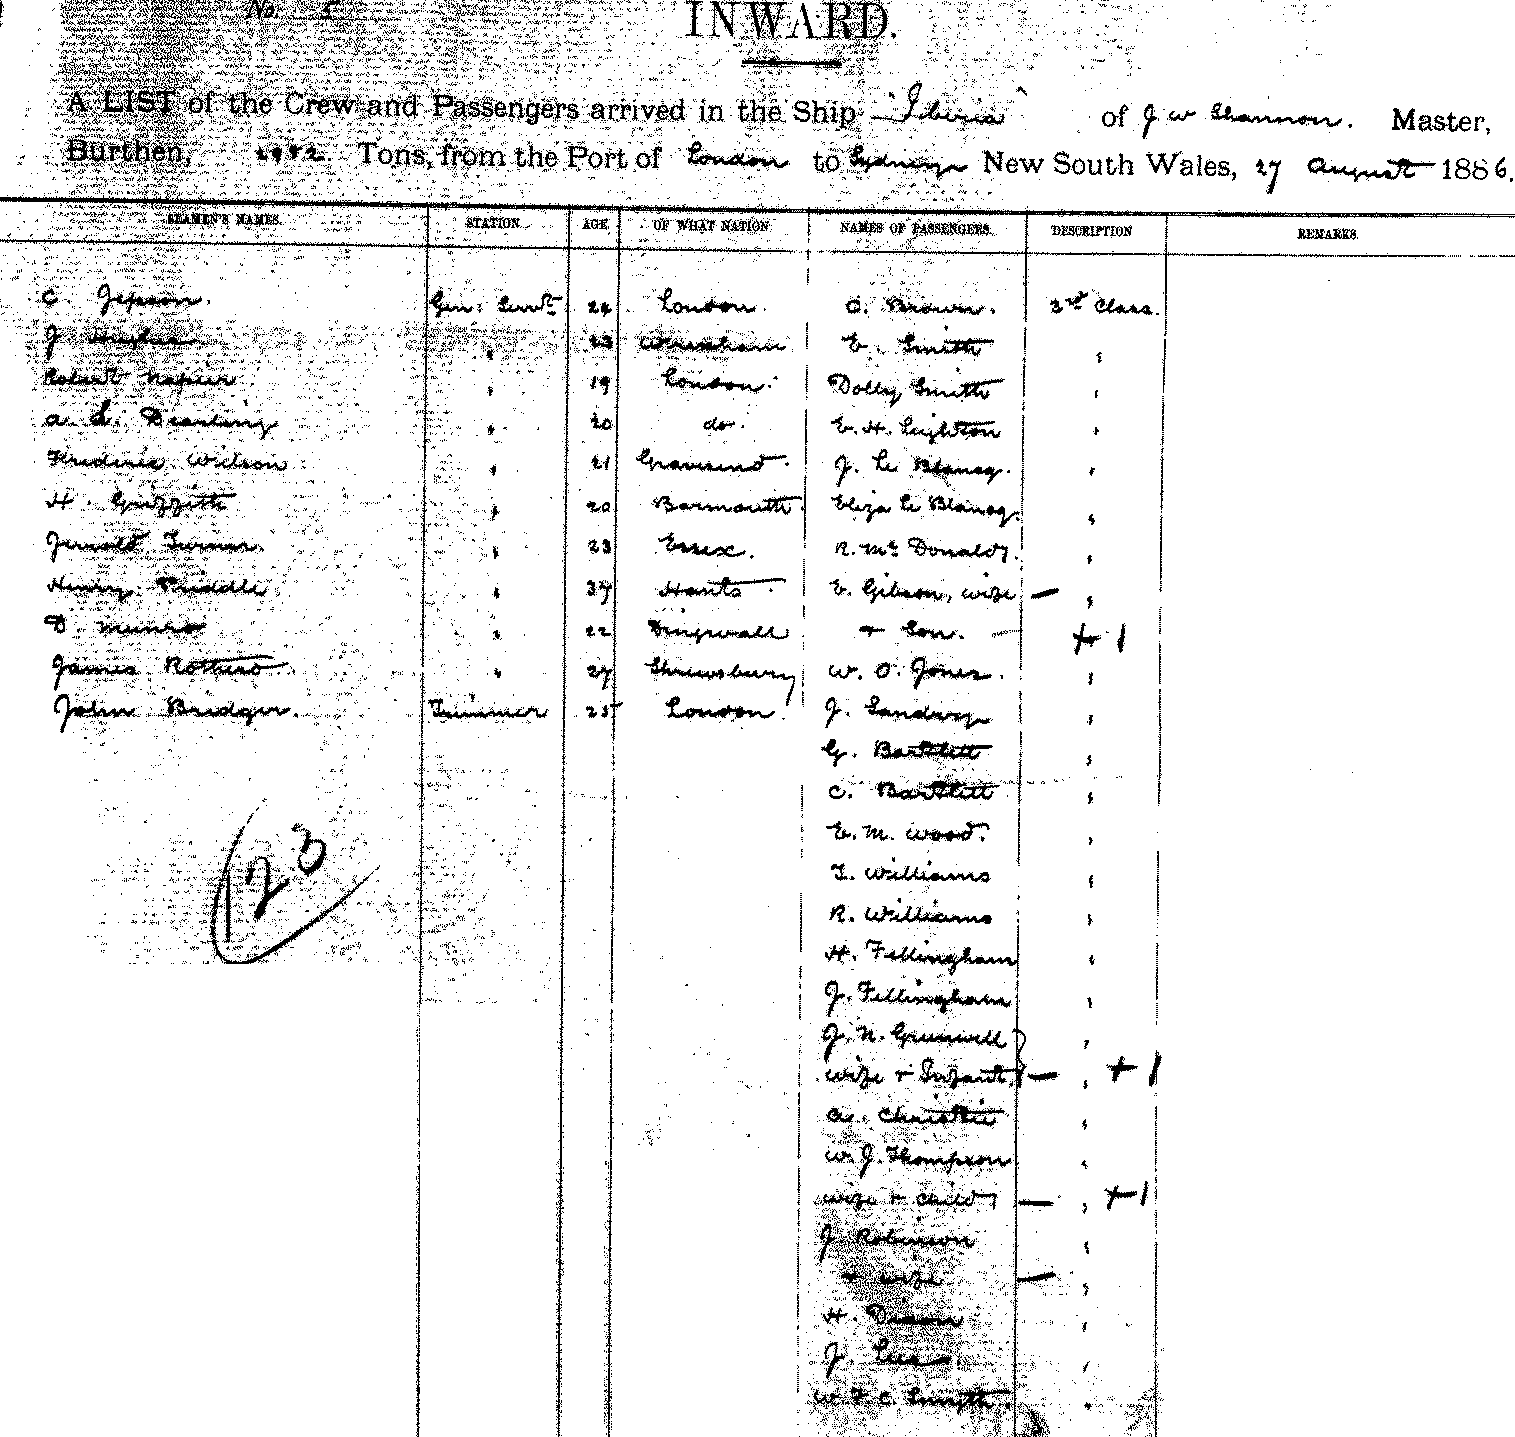 No. 5
INWARD.
A LIST of the Crew and Passengers arrived in the Ship "Iberia" of J W Shannon. Master,
Burthen, Tons, from the Port of London to Sydney New South Wales, 27 August 1886.
SEAMEN'S NAMES. STATION. AGE OF WHAT NATION NAMES OF PASSENGERS. DESCRIPTION REMARKS.
C. Jepson. Gen: Servt 24 London. C. Brown. 3rd Class.
J Hughes 23 Wrexham E. Smith "
Robert Napier " 19 London. Dolly Smith "
A. L. Dearling " 20 do. E. H. Leighton "
Frederic Wilson " 21 Gravesend. J. Le Blancq. "
H. Griffith " 20 Barmouth. Eliza Le Blancq. "
Turner. " 23 Essex. R. Mc Donald. "
Henry Priddle " 37 Hants. E. Gibson, wife — "
D. Munro " 22 Dingwall + Son. — + 1
James " 27 Shrewsbury W. O. Jones. "
John Bridger. Trimmer 25 London. J. "
G. Bartlett "
C. Bartlett "
E. M. Wood. "
T. Williams "
R. Williams "
(123 H. Fillingham "
J. Fillingham "
J. N. "
wife + Infant. — " + 1
A. Christie "
W. J. Thompson "
wife + child — " + 1
J Robinson "
+ wife — "
H. Dixon "
J. "
W. F. C. Smyth. "